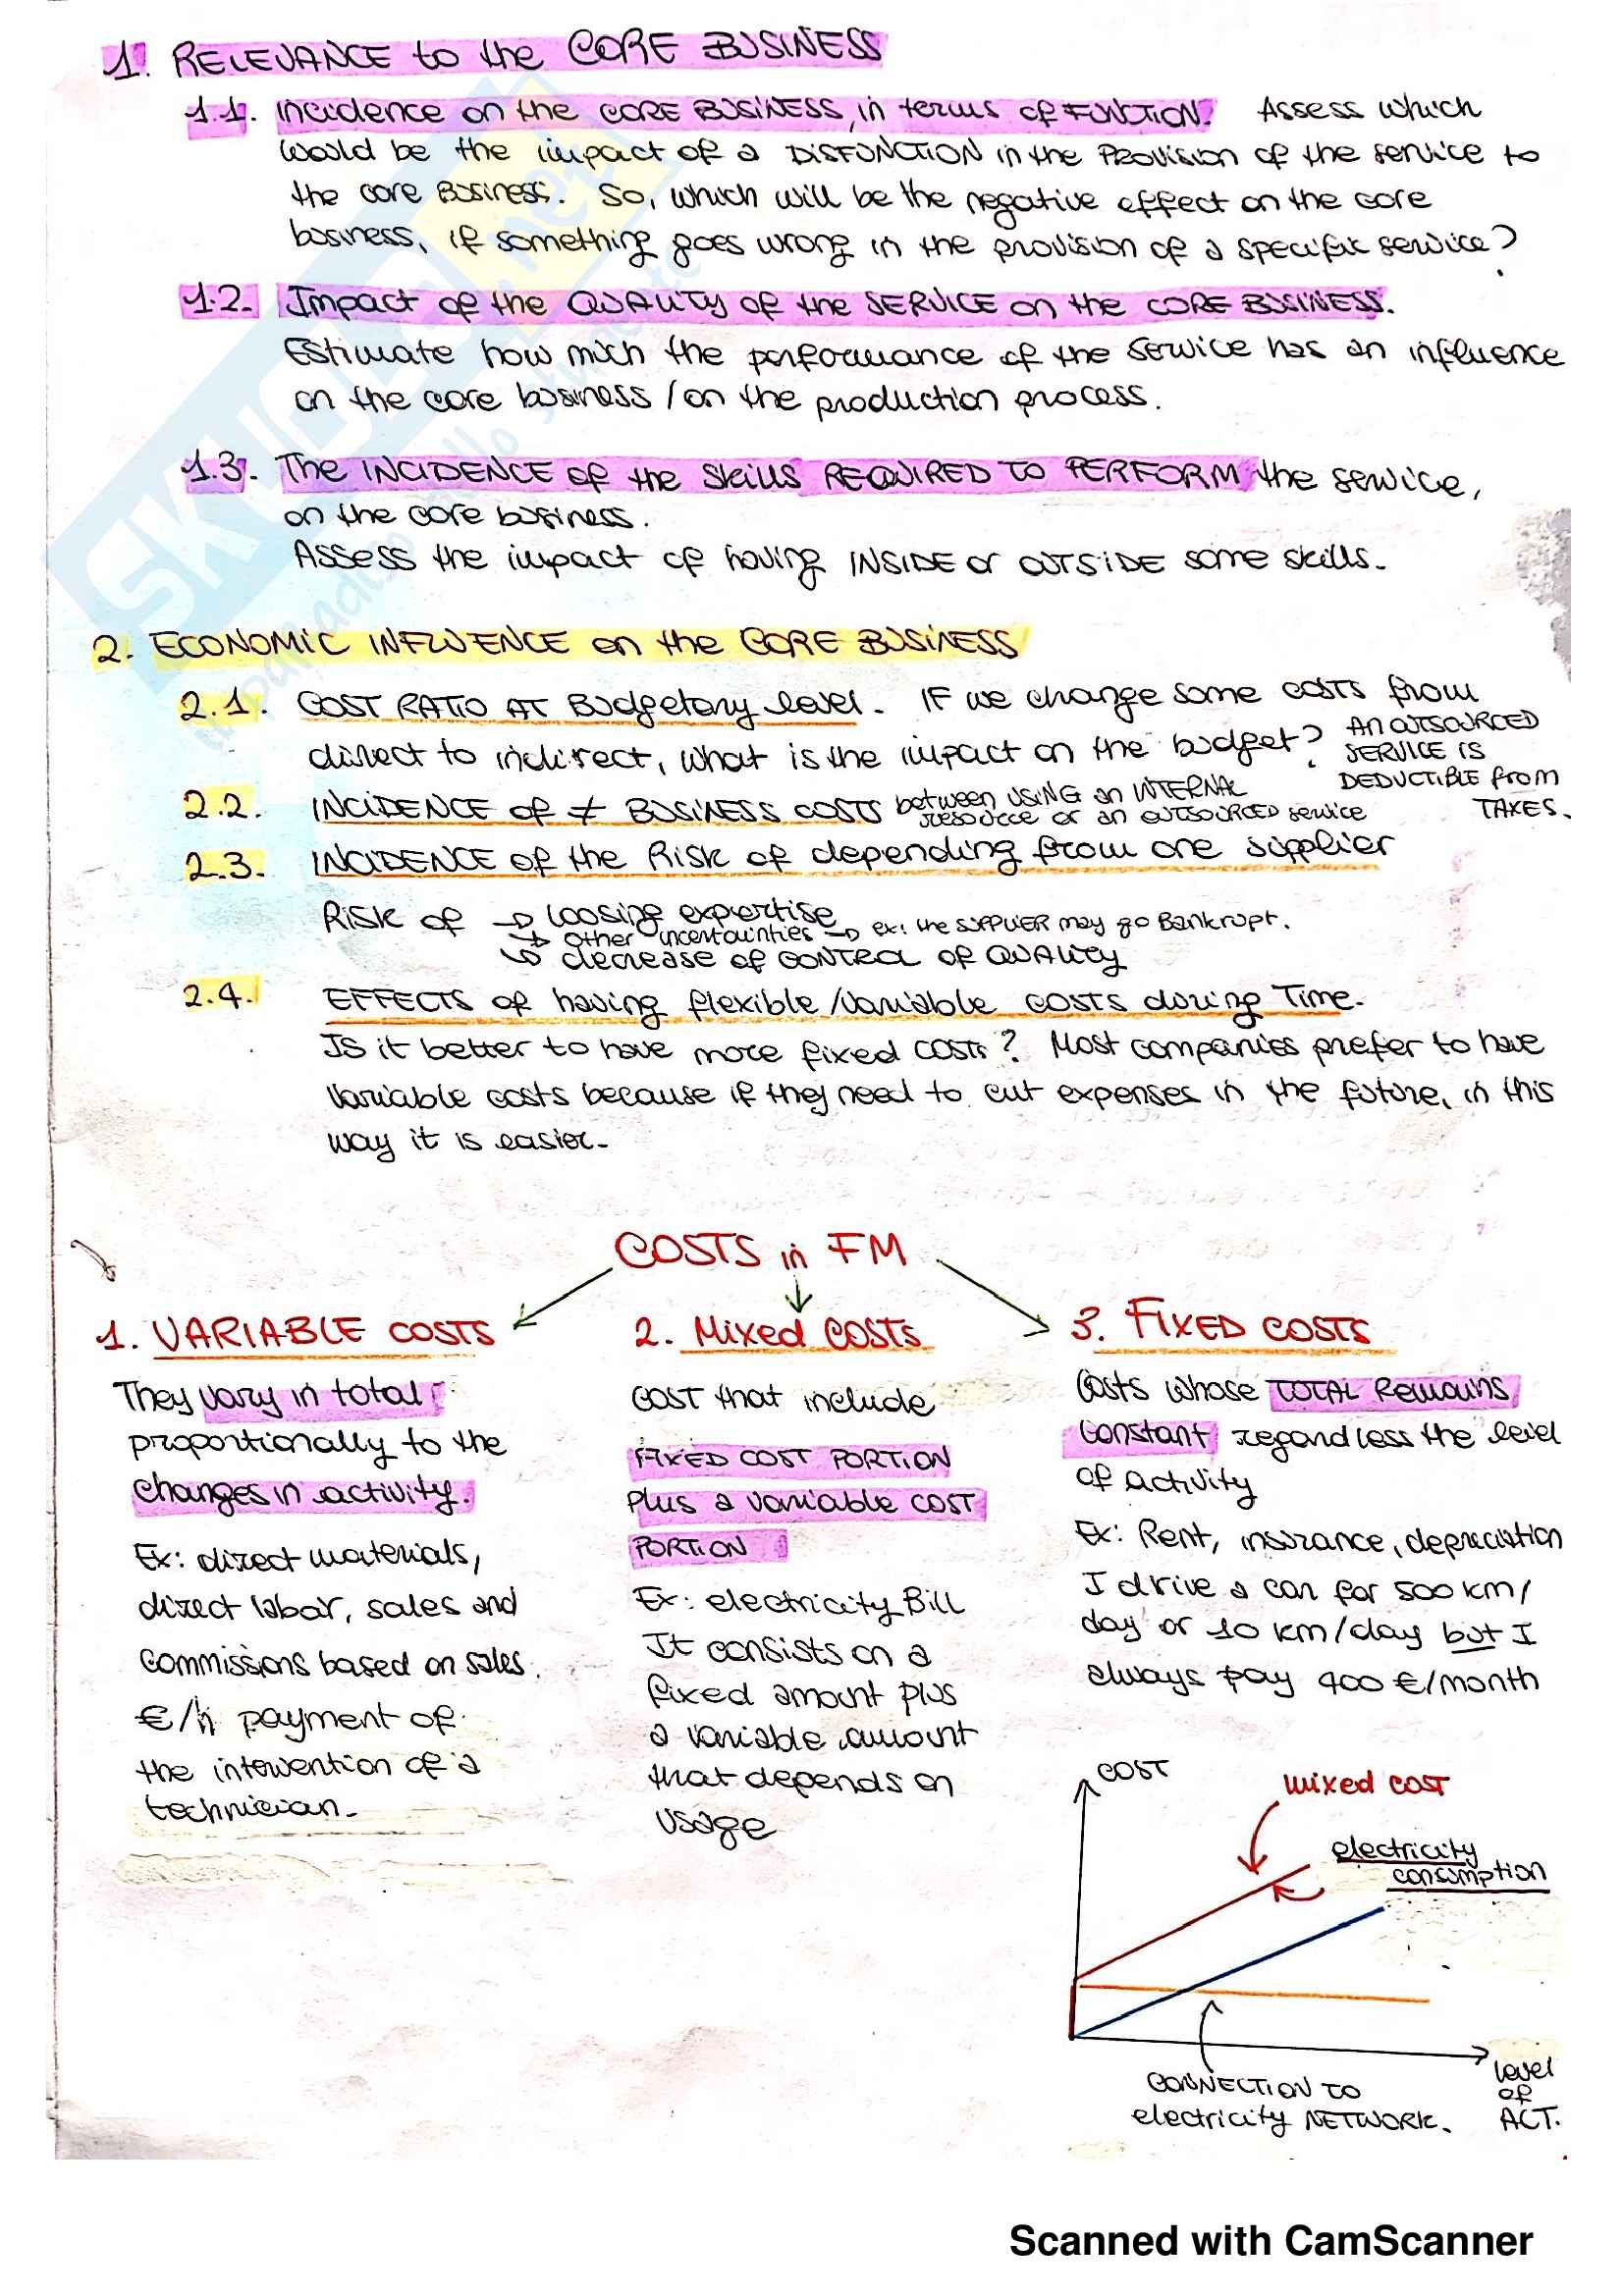 1. RELEVANCE to the CORE BUSINESS
1.1. Incidence on the CORE BUSINESS, in terms of FUNCTION. Assess which
would be the impact of a DISFUNCTION in the Provision of the service to
the core Business. So, which will be the negative effect on the core
business, if something goes wrong in the provision of a specific service?
1.2. Impact of the QUALITY of the SERVICE on the CORE BUSINESS.
Estimate how much the performance of the service has an influence
on the core business / on the production process.
1.3. The INCIDENCE of the Skills REQUIRED TO PERFORM the service,
on the core business.
Assess the impact of having INSIDE or OUTSIDE some skills.
2. ECONOMIC INFLUENCE on the CORE BUSINESS
2.1. COST RATIO AT Budgetary level. IF we change some costs from
direct to indirect, what is the impact on the budget? AN OUTSOURCED
SERVICE IS
DEDUCTIBLE from
TAXES.
2.2. INCIDENCE of ≠ BUSINESS COSTS between USING an INTERNAL
resource or an OUTSOURCED service
2.3. INCIDENCE of the Risk of depending from one supplier
Risk of → loosing expertise
→ other uncertainties → ex: the SUPPLIER may go Bankrupt.
↳ decrease of CONTROL OF QUALITY
2.4. EFFECTS of having flexible/variable costs during Time.
Is it better to have more fixed costs? Most companies prefer to have
variable costs because if they need to cut expenses in the future, in this
way it is easier.
COSTS in FM
1. VARIABLE COSTS
They vary in total
proportionally to the
changes in activity.
Ex: direct materials,
direct labor, sales and
commissions based on sales.
€/h payment of
the intervention of a
technician.
2. Mixed COSTS
COST that include
FIXED COST PORTION
plus a variable COST
PORTION
Ex: electricity Bill
It consists on a
fixed amount plus
a variable amount
that depends on
usage
3. FIXED COSTS
Costs whose TOTAL Remains
Constant regardless the level
of activity
Ex: Rent, insurance, depreciation
I drive a car for 500 km/
day or 10 km/day but I
always pay 400 €/month
COST
mixed cost
electricity
consumption
CONNECTION TO
electricity NETWORK.
level
of
ACT.
Scanned with CamScanner